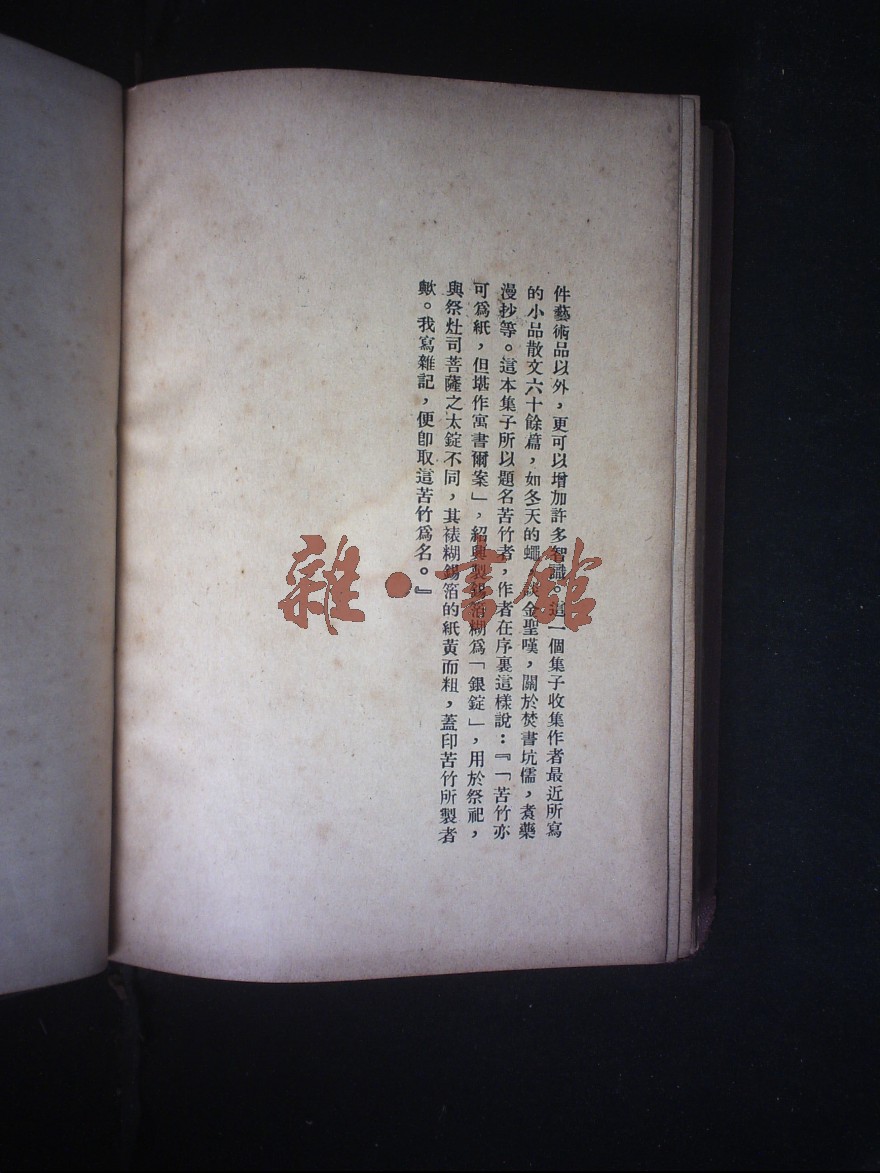 件藝術品以外，更可以增加許多智識。這一個集子收集作者最近所寫
的小品散文六十餘篇，如冬天的蠅，談金聖嘆，關於焚書坑儒，煑藥
漫抄等。這本集子所以題名苦竹者，作者在序裏這樣說：『「苦竹亦
可爲紙，但堪作寓書爾案」，紹興製錫箔糊爲「銀錠」，用於祭祀，
與祭灶司菩薩之太錠不同，其裱糊錫箔的紙黃而粗，蓋印苦竹所製者
歟。我寫雜記，便卽取這苦竹爲名。』
雜·書館